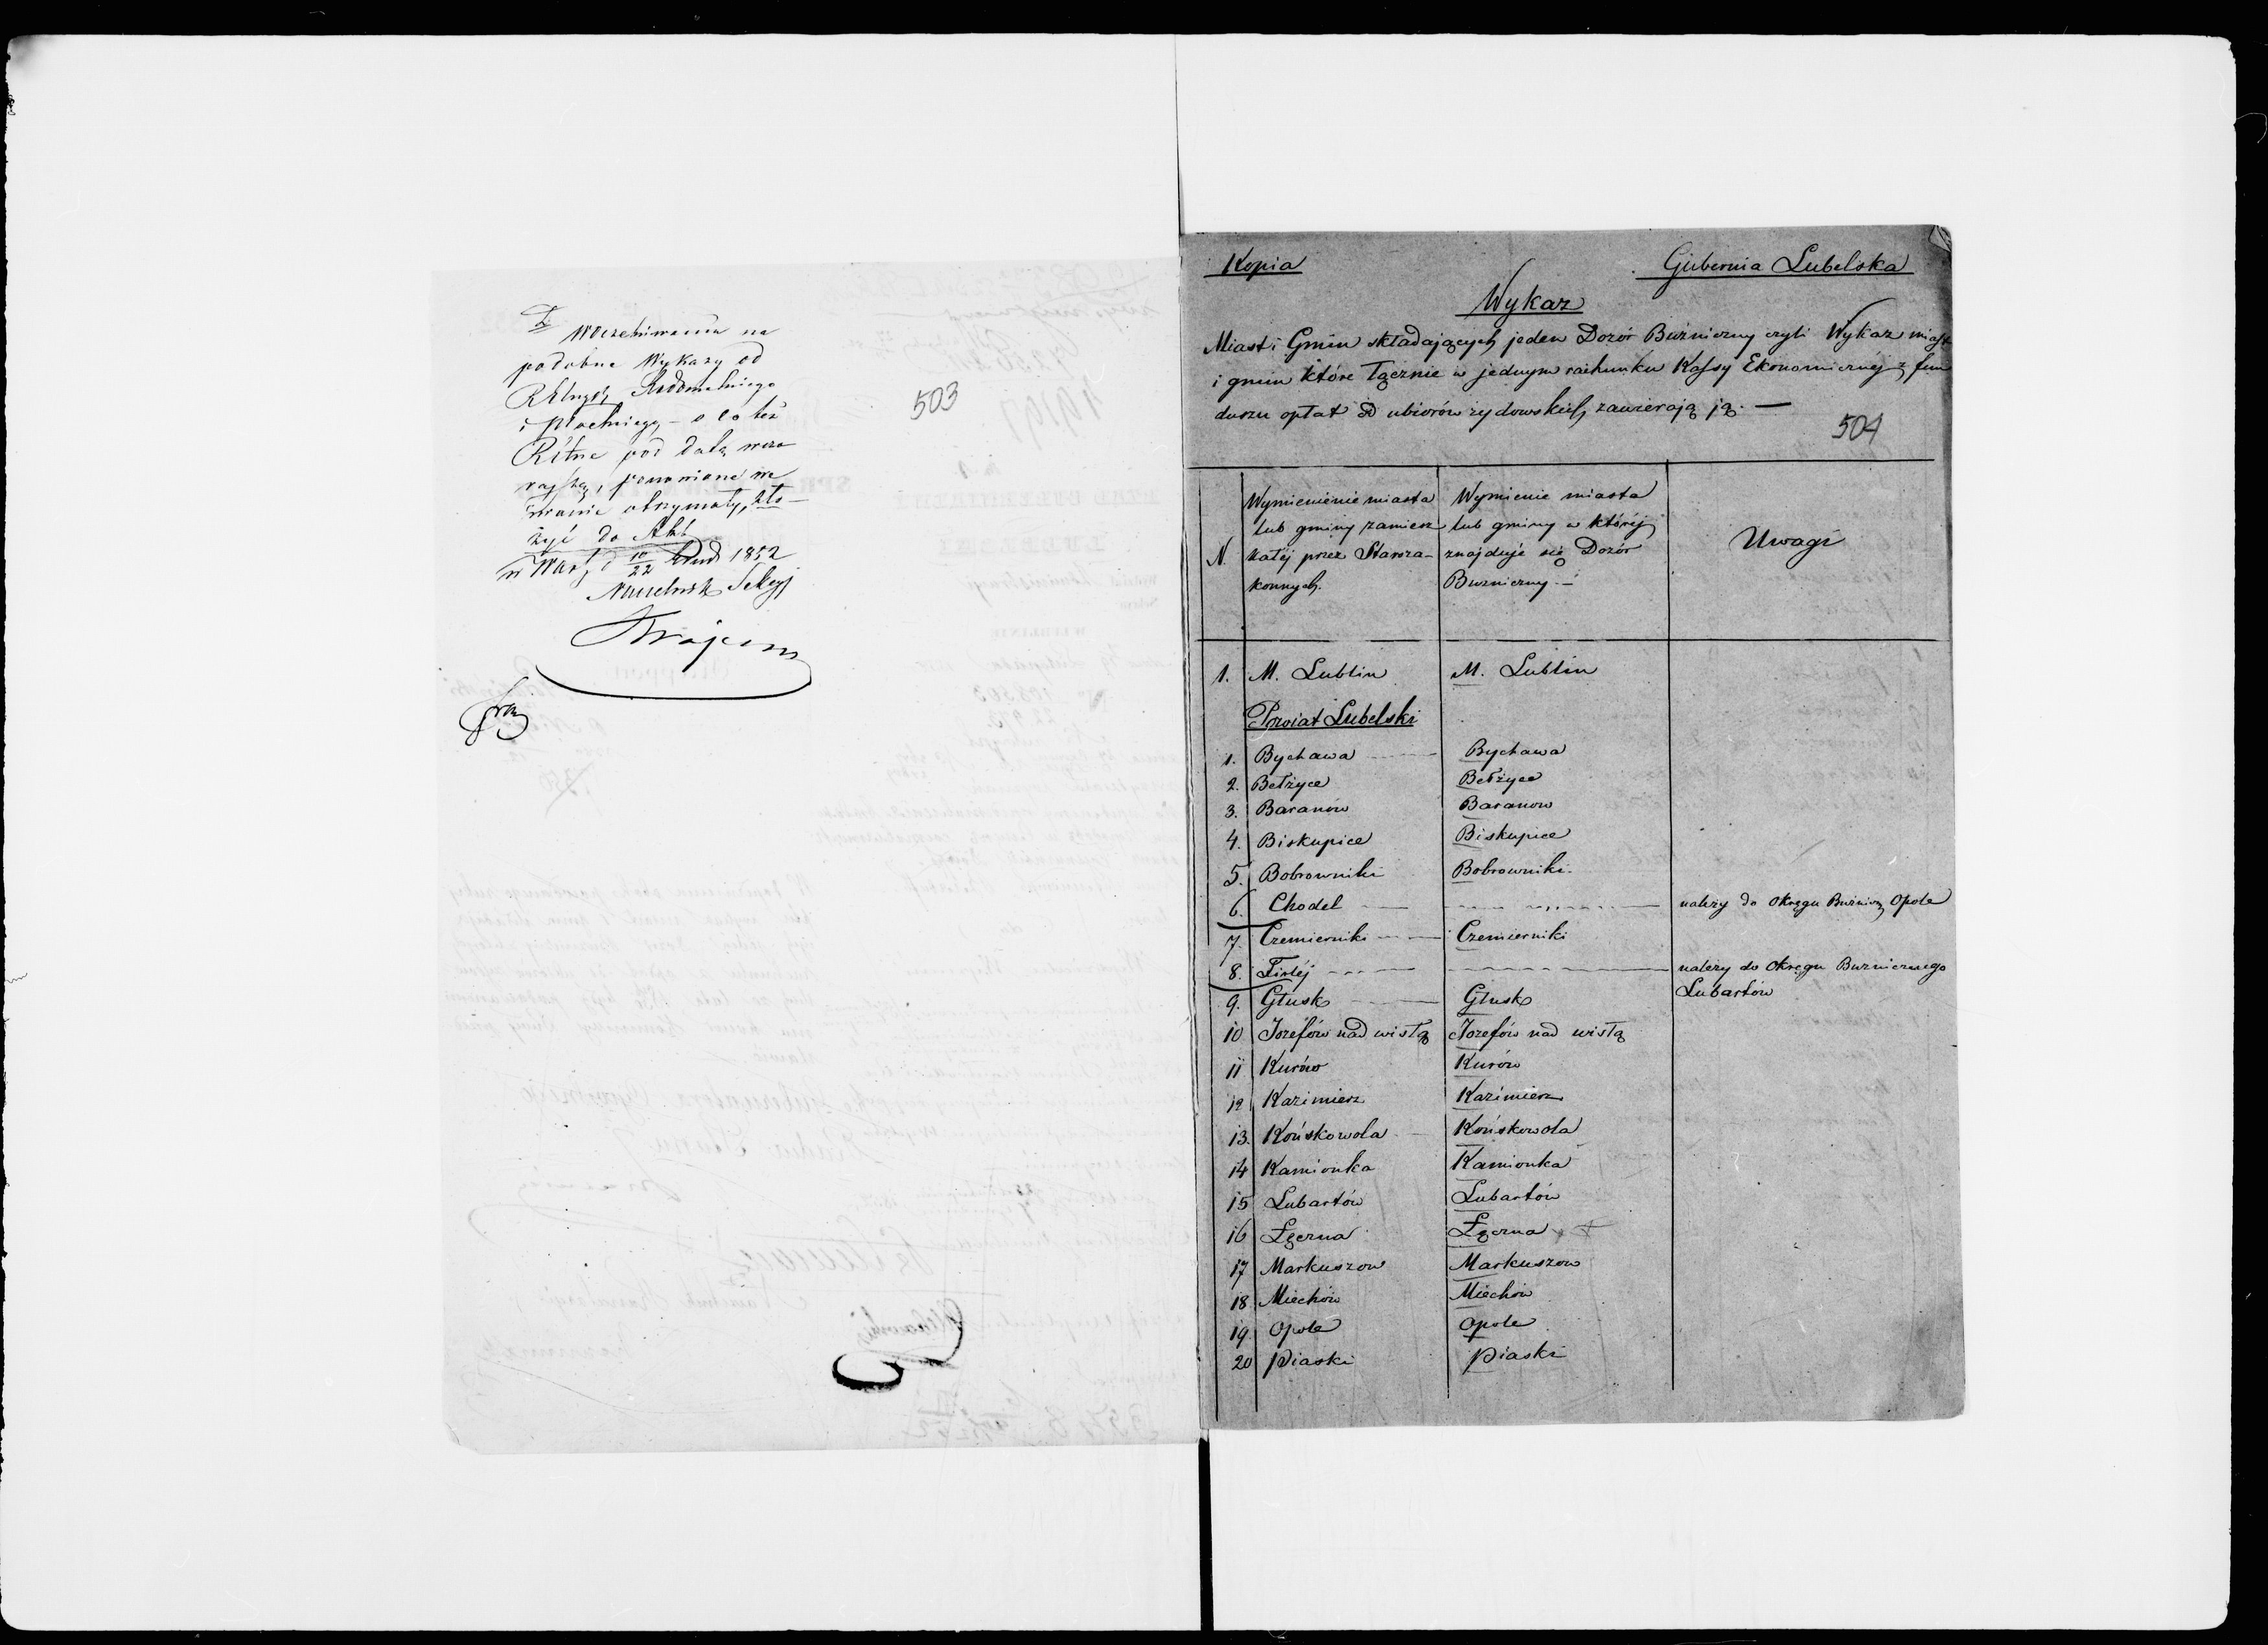 W oczekiwaniu na
podobne Wykazy od
Radomskiego
i Płockiego – o co też
Rttne pod datą wczo
rajszą, ponowione we
zwanie otrzymały, zło–
żyć do Akt
w Wars. d 10/22 Grud 1852
Naczelnik Sekcyi
503
Kopia
Gubernia Lubelska
Wykaz
Miast i Gmin składających jeden Dozór Bużniczny czyli Wykaz miast
i gmin które łącznie w jednym rachunku Kassy Ekonomicznéj z fun
duszu opłat od ubiorów żydowskich zawierają się. —
504
N.
Wymienienie miasta
lub gminy zamiesz
kałéj przez Staroza-
konnych.
Wymienie miasta
lub gminy w któréj
znajduje się Dozór
Bużniczny. –
Uwagi
1. M. Lublin M. Lublin
Powiat Lubelski
1. Bychawa Bychawa
2. Bełżyce Bełżyce
3. Baranów Baranow
4. Biskupice Biskupice
5. Bobrowniki Bobrowniki.
6. Chodel należy do Okręgu Bużnicz Opole
7. Czemierniki Czemierniki
8. Firléj należy do Okręgu Bużnicznego
Lubartów
9. Głusk Głusk
10 Jozefów nad wisłą Jozefów nad wisłą
11 Kurów Kurów
12 Kazimierz Kazimierz
13. Końskowola Końskowola
14 Kamionka Kamionka
15 Lubartów Lubartów
16 Łęczna Łęczna
17 Markuszow Markuszow
18 Miechów Miechów
19. Opole Opole
20 Piaski Piaski